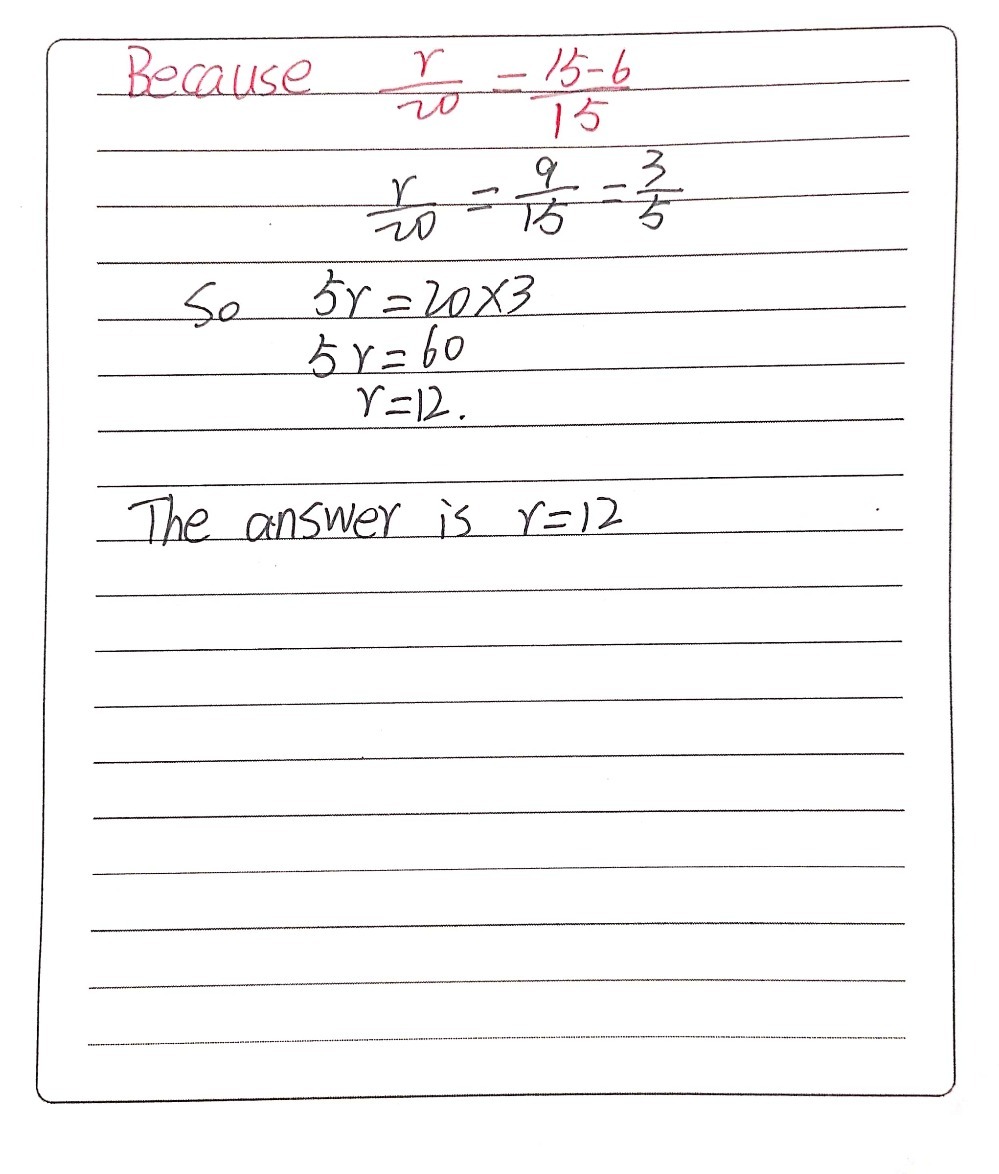 Because r/20 = 15-6/15
r/20 = 9/15 = 3/5
So 5r=20×3
5r=60
r=12.
The answer is r=12